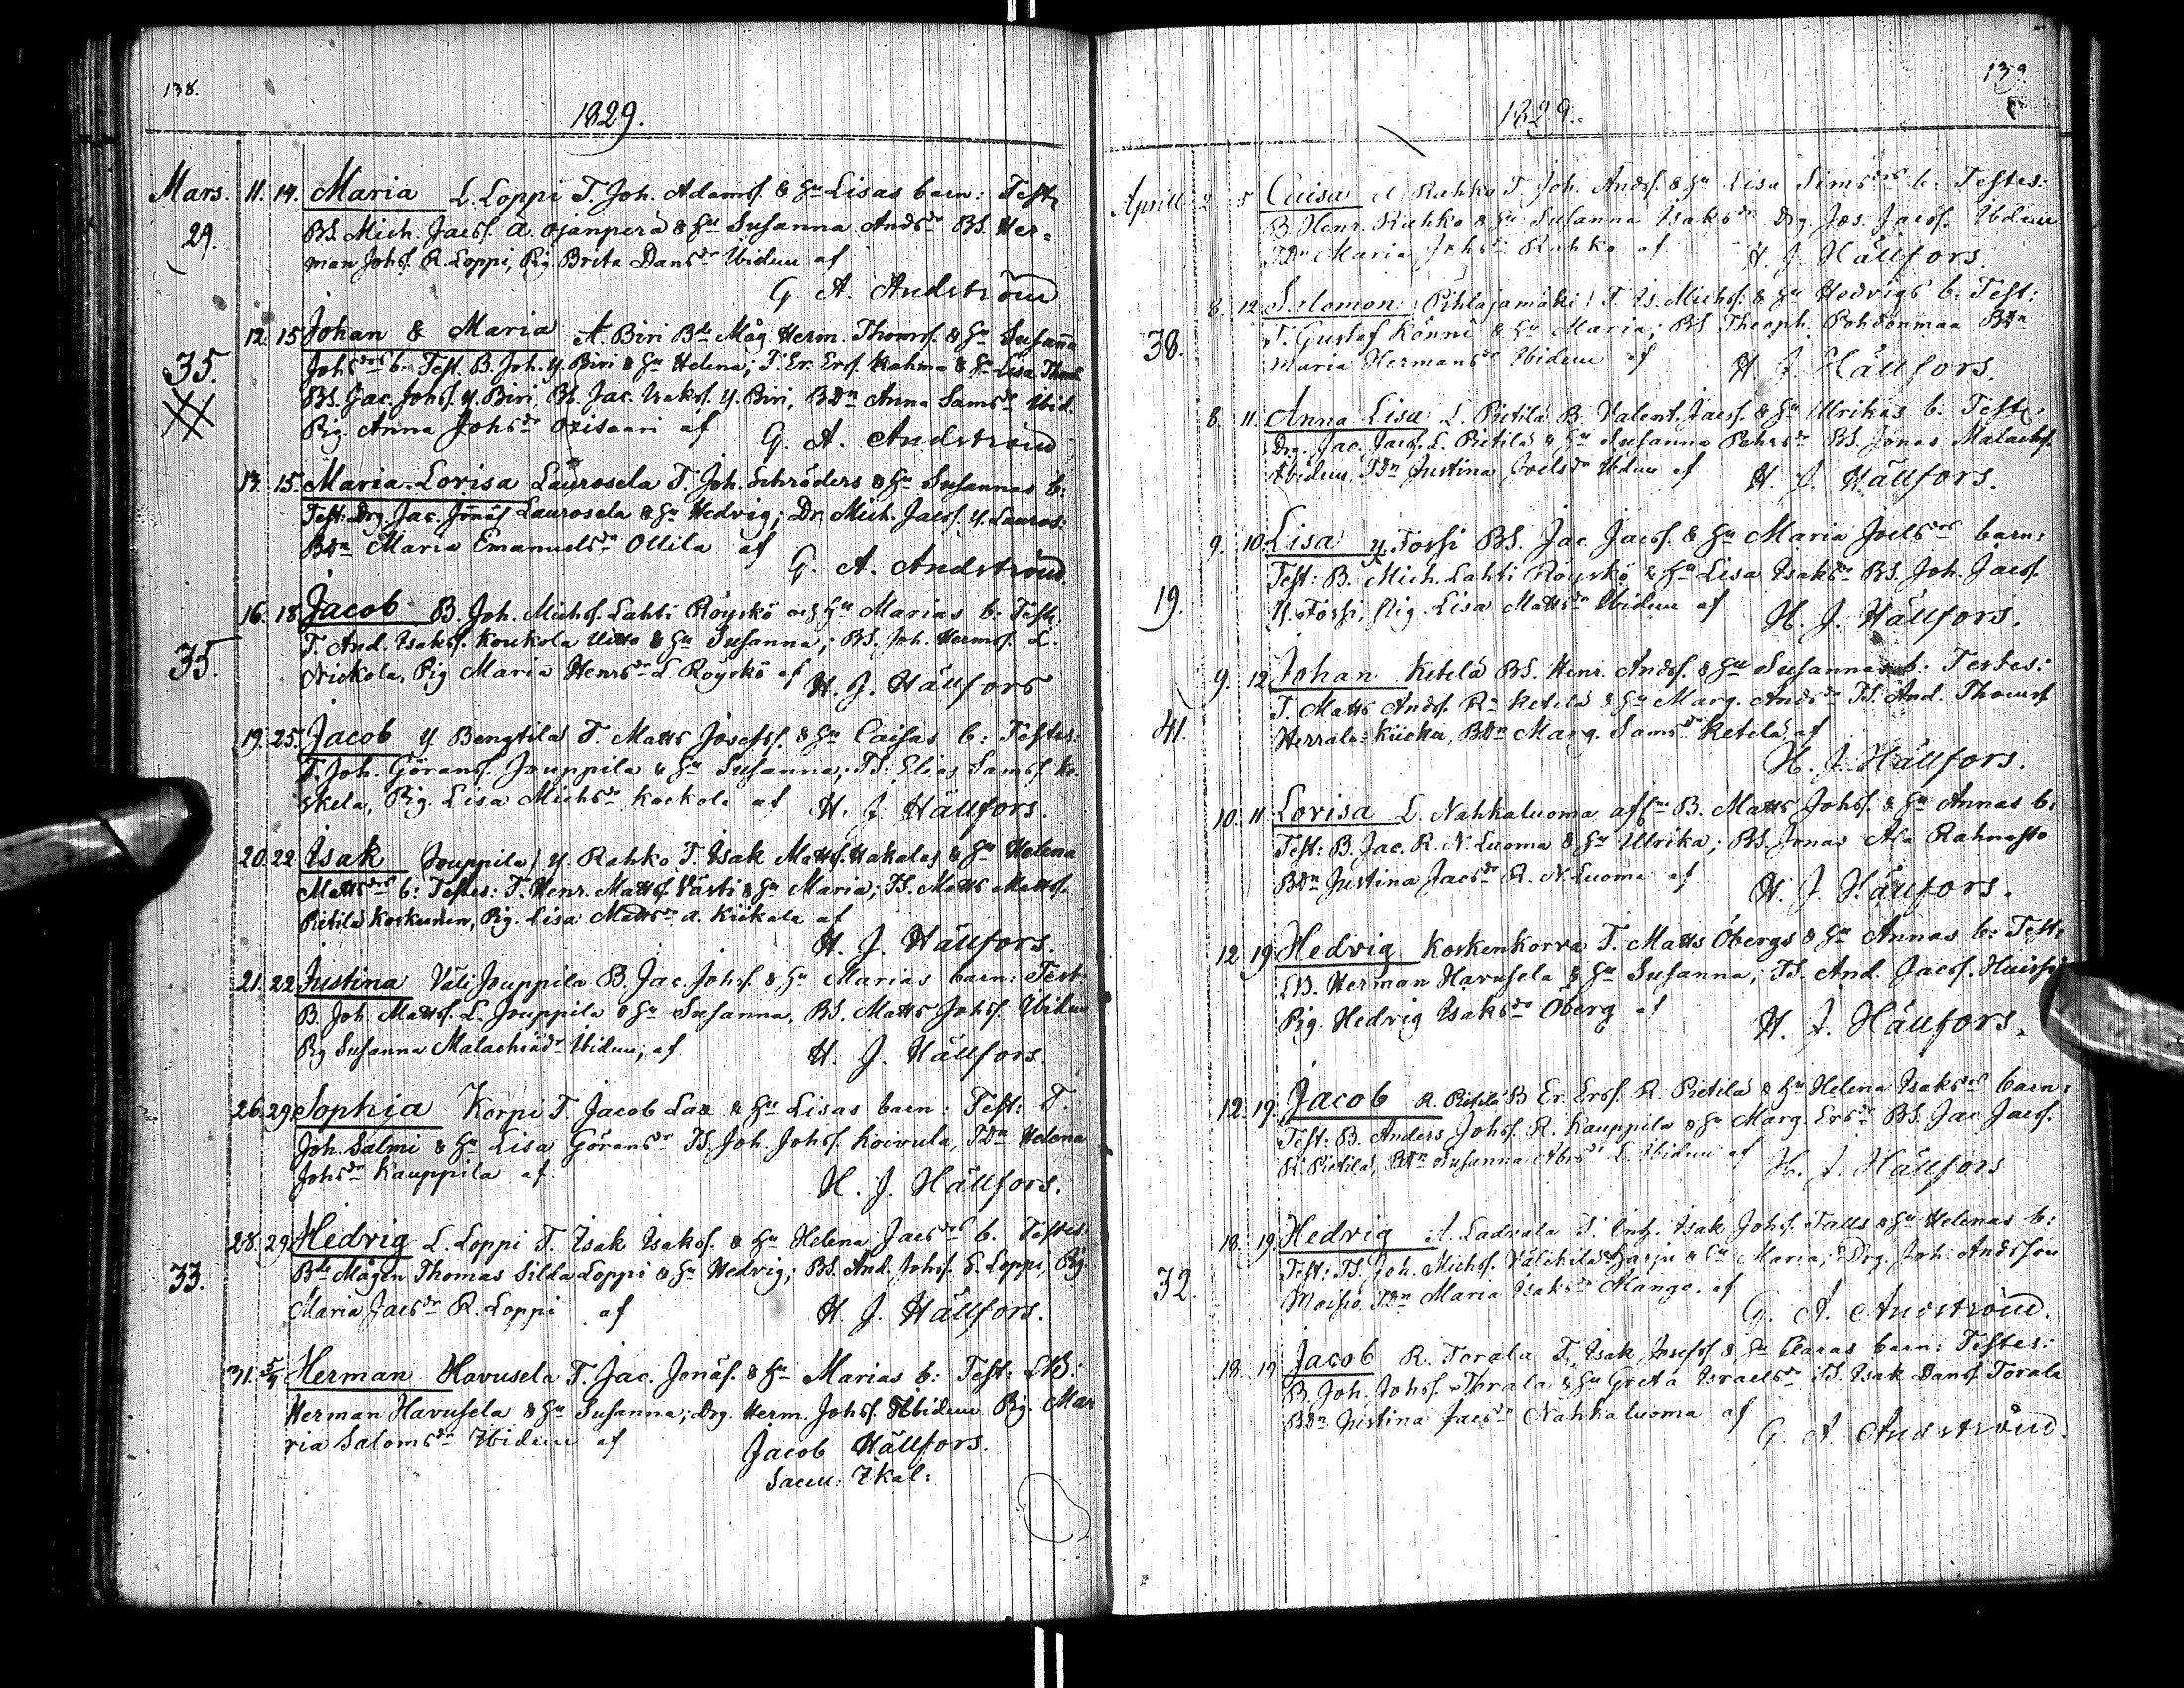 138.
1829.
Mars. 11. 14. Maria L. Loppi T. Joh. Adamsf. & Hu Lisas barn: Test:
29. BS. Mich. Jacsf. A. Ojanperä & Hu Susanna Andsdr BS. Her-
man Johsf. R. Loppi, Pig. Brita Dansdr Ibidem af
G. A. Andström
12. 15 Johan & Maria A. Biri Bde Måg. Herm. Thomsf. & Hu Susanna
35. Johsdrs b: Test. B. Joh. Y. Biri & Hu Helena; T. Er. Ersf. Rahma & Hu Lisa
BS. Jac. Johsf. Y. Biri, BS. Jac. Isaksf. Y. Biri, BDr Anna Samsdr Ibid.
Pig. Anna Johsdr Orisaari af G. A. Andström
13. 15. Maria Lovisa Laurosela T. Joh. Schröders & Hu Susannas b:
Test: Drg Jac. Laurosela & Hu Hedvig; Dr. Mich. Jacsf. Y. Lauros:
BDr Maria Emanuelsdr Ollila af
G. A. Andström
16. 18. Jacob B. Joh. Michsf. Lahti Röyskö och Hu Marias b: Test:
35. T. And. Isaksf. Koukola & Hu Susanna; BS. Joh. Hermsf. L.
Nickola, Pig Maria Henrsdr L Röyskö af H. J. Hällfors
19. 25. Jacob Y Bengtilä T. Matts Josefsf. & Hu Caisas b: Testes:
T. Joh. Göransf. Jouppila & Hu Susanna; TS. Elias Samsf. Ko-
skela, Pig. Lisa Michsdr Kockola af H. J. Hällfors.
20. 22 Isak Jouppila Y. Rahko T. Isak Mattsf. Hakalas & Hu Helena
Mattsdrs b: Testes: T. Henr. Mattsf. Västi & Hu Maria; TS. Matts Mattsf.
Pietilä Koskenkor, Pig. Lisa Mattsdr A. Kiikala af
H. J. Hällfors.
21. 22 Justina Väli Jouppila B. Jac. Johsf. & Hu Marias barn: Test:
B. Joh. Mattsf. L. Jouppila & Hu Susanna, BS. Matts Johsf. Ibidem
Pig Susanna Malachiädr Ibidem, af H. J. Hällfors.
26. 29. Sophia Korpi T. Jacob Lax & Hu Lisas barn: Test: T.
Joh. Salmi & Hu Lisa Göransdr TS. Joh. Johsf. Koivula, TDr Helena
Johsdr Kauppila af
H. J. Hällfors.
28. 29. Hedvig L. Loppi T. Isak Isaksf. & Hu Helena Jacsdrs b. Testes:
33. Bde Mågen Thomas Silda Loppi & Hu Hedvig; BS. And. Johsf. S. Loppi, Pig
Maria Jacsdr R. Loppi af H. J. Hällfors.
31. 5/4 Herman Havusela T. Jac. Jonäsf. & Hu Marias b: Test: LB:
Herman Havusela & Hu Susanna; Drg. Herm. Johsf. Ibidem Pig. Ma-
ria Salomsdr Ibidem af Jacob Hällfors.
Sacell:
139
1829.
Aprill 2. 5 Caisa Rahko T. Joh. Andsf. & Hu Lisa Simsdrs b: Testes:
B. Henr. Rahko & Hu Susanna Isaksdr Drg Jos. Jacsf. Ibidem
TDr Maria Johsdr Rahko af H. J. Hällfors.
8. 12 Salomon Pihlajamäki T. Is. Michsf. & Hu Hedvigs b: Test:
38. T. Gustaf Könni & Hu Maria; BS Theoph. Pohdonmaa BDr
Maria Hermansdr Ibidem af H. J. Hällfors.
8. 11. Anna Lisa L. Pietilä B. Valent. Jacsf. & Hu Ulrikas b: Test:
Drg. Jac. Jacsf. L. Pietilä & Hu Susanna Pehrsdr BS. Jonas Malachsf.
Ibidem, TDr Justina Joelsdr Ibidem af H. J. Hällfors.
9. 10 Lisa Y. Forssi BS. Jac. Jacsf. & Hu Maria Joelsdrs barn:
Test: B. Mich. Lahti Röyskö & Hu Lisa Isaksdr BS. Joh. Jacsf.
19. Y. Forssi, Pig. Lisa Mattsdr Ibidem af H. J. Hällfors.
9. 12 Johan Ketelä BS. Henr. Andsf. & Hu Susannas b: Testes:
T. Matts Andsf. Rn Ketelä & Hu Marg. Andsdr TS. And. Thomsf.
41. Herrala Kiicka, BDr Marg. Samsdr Ketelä, af
H. J. Hällfors.
10. 11 Lovisa L. Nahkaluoma B. Matts Johsf. & Hu Annas b:
Test: B. Jac. R. N. Luoma & Hu Ulrika; BS. Jonas Ala Rahnasto
BDr Justina Jacsdr R. N Luoma af H. J. Hällfors.
12. 19 Hedvig Koskenkorva T. Matts Öbergs & Hu Annas b: Test:
LB. Herman Havusela & Hu Susanna; TS. And. Jacsf.
Pig. Hedvig Isaksdr Öberg af H. J. Hällfors.
12. 19. Jacob R. Pietilä B Er. Ersf. R. Pietilä & Hu Helena Isaksdrs barn:
Test: B. Anders Johsf. R. Kauppila & Hu Marg. Ersdr BS. Jac. Jacsf.
R. Pietilä, BDr Susanna Ibidem af H. J. Hällfors
18. 19. Hedvig A. Ladvala T. Isak Johsf. Falls & Hu Helenas b:
Test: TS. Joh. Michsf. Harju & Hu Maria; Drg. Joh. Andsson
32. Moisio, TDr Maria Isaksdr Manga. af
G. A. Andström.
18. 19 Jacob R. Torala T. Isak Josefsf & Hu Claras barn: Testes:
B. Joh. Johsf. Torala & Hu Greta Israelsdr TS. Isak Dansf. Torala
BDr Justina Jacsdr Nahkaluoma af
G. A. Andström.